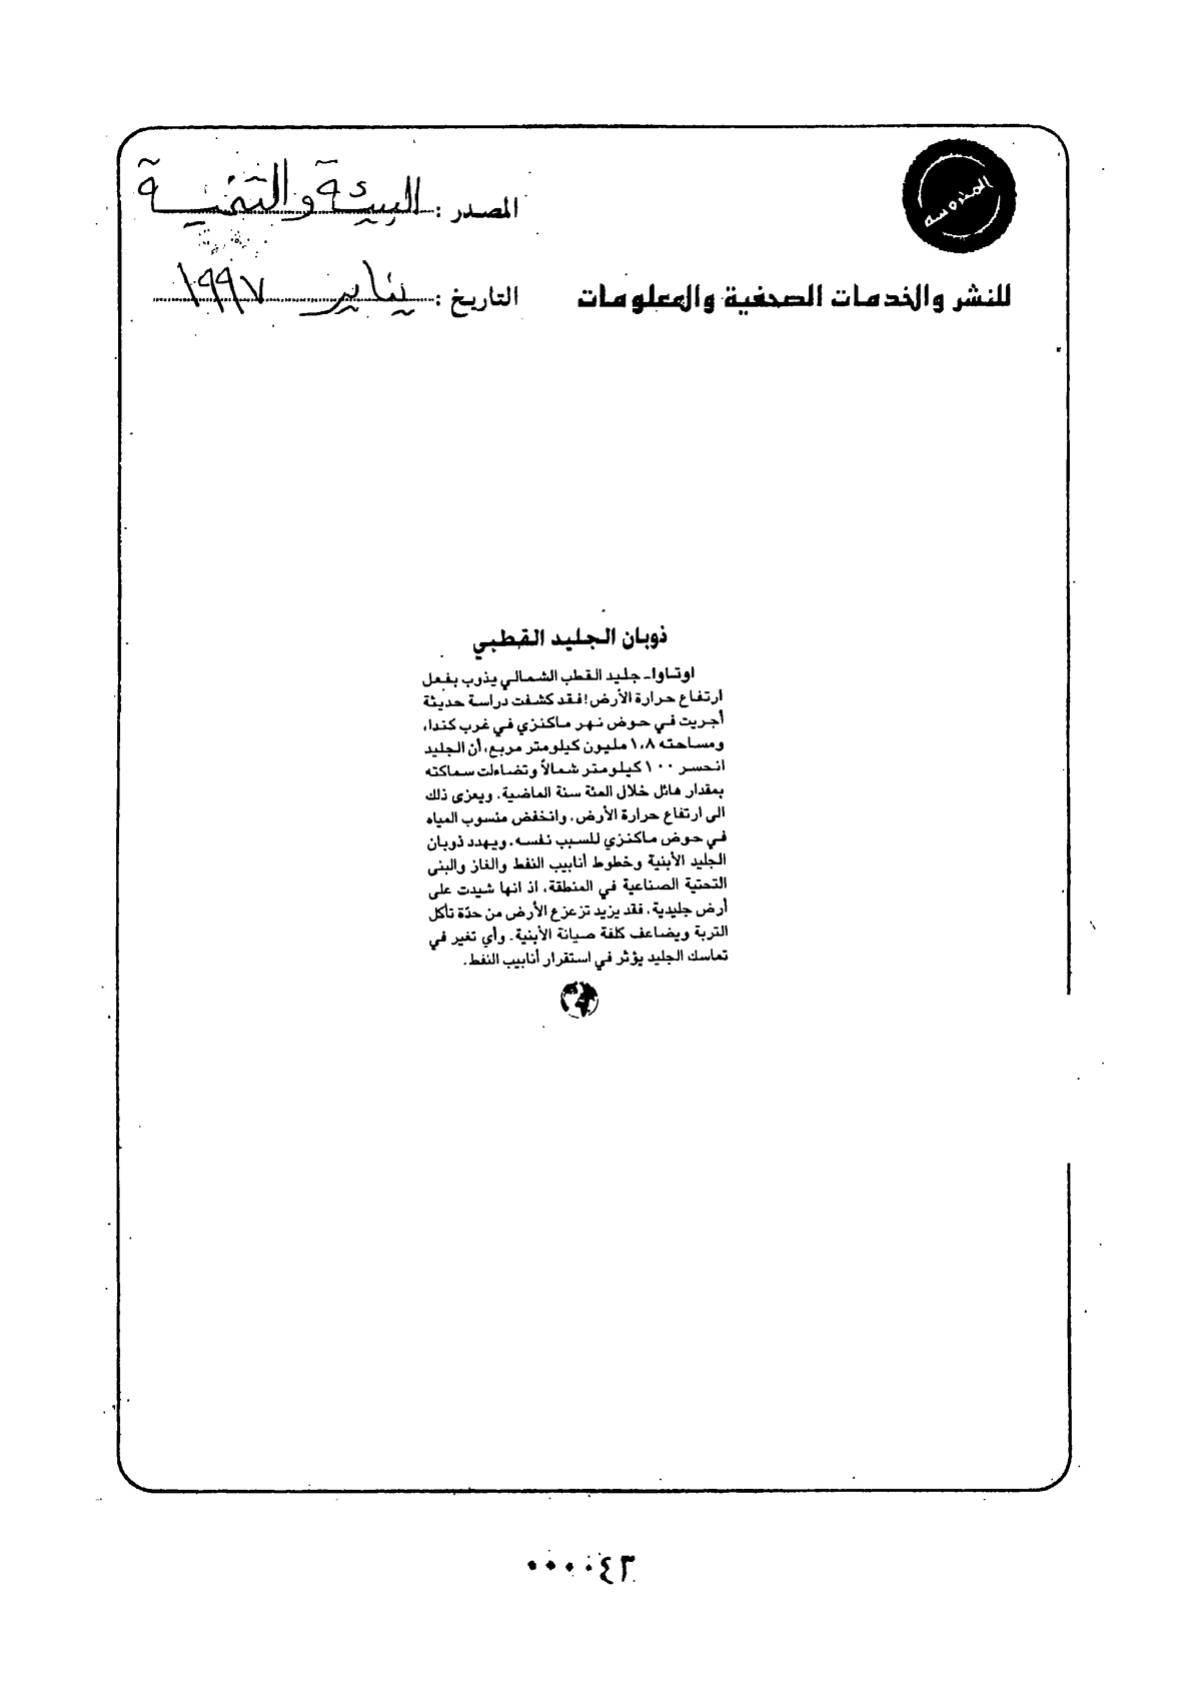 المحروسة
المصدر : البيئة والتنمية
للنشر والخدمات الصحفية والمعلومات
التاريخ : يناير ١٩٩٧
ذوبان الجليد القطبي
اوتاوا- جليد القطب الشمالي يذوب بفعل
ارتفاع حرارة الأرض! فقد كشفت دراسة حديثة
أجريت في حوض نهر ماكنزي في غرب كندا،
ومساحته ١،٨ مليون كيلومتر مربع، أن الجليد
انحسر ١٠٠ كيلومتر شمالاً وتضاءلت سماكته
بمقدار هائل خلال المئة سنة الماضية. ويعزى ذلك
الى ارتفاع حرارة الأرض. وانخفض منسوب المياه
في حوض ماكنزي للسبب نفسه. ويهدد ذوبان
الجليد الأبنية وخطوط أنابيب النفط والغاز والبنى
التحتية الصناعية في المنطقة، اذ انها شيدت على
أرض جليدية. فقد يزيد تزعزع الأرض من حدّة تآكل
التربة ويضاعف كلفة صيانة الأبنية. وأي تغير في
تماسك الجليد يؤثر في استقرار أنابيب النفط.
٠٠٠٠٤٣